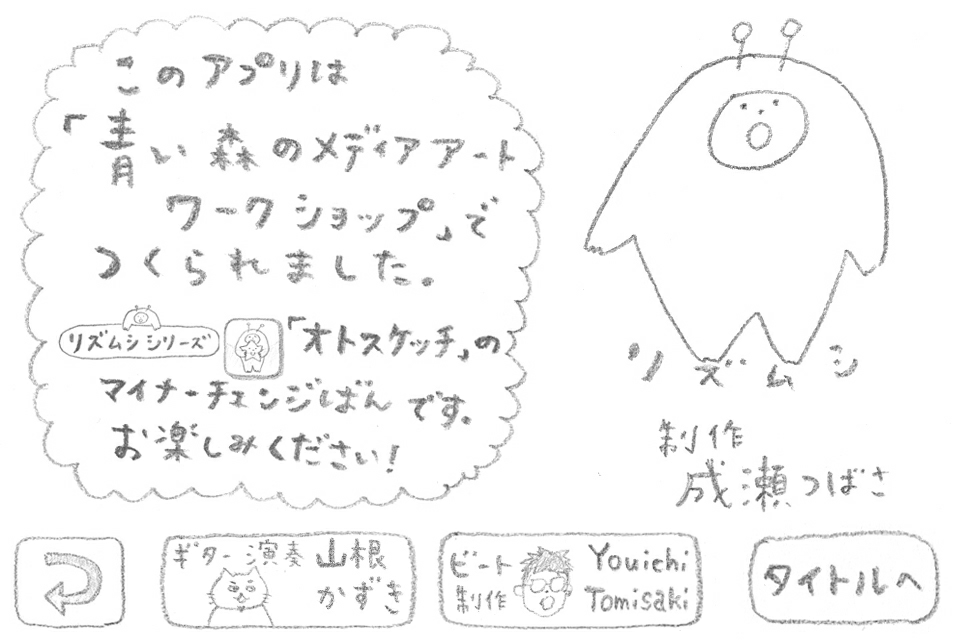 このアプリは
「青い森のメディアアート
ワークショップ」で
つくられました。
リズムシシリーズ 「オトスケッチ」の
マイナーチェンジばんです。
お楽しみください!
リズムシ
制作
成瀬つばさ
ギター演奏 山根
かずき
ビート
制作
Youichi
Tomisaki
タイトルへ